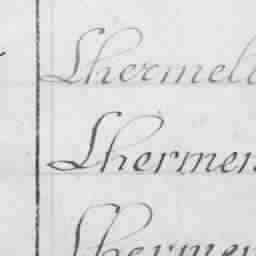 Lhermel
Lhermen
Lhermen